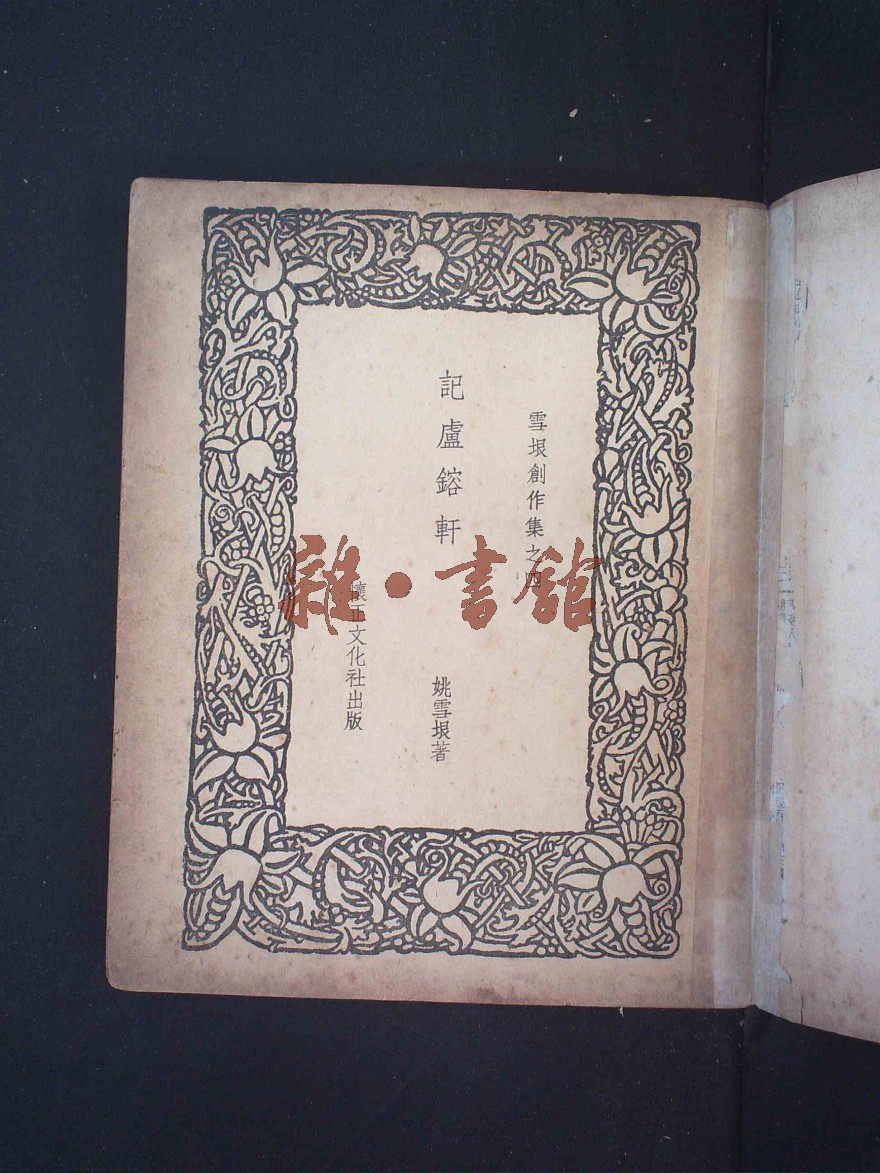 雪垠創作集之四
記盧鎔軒
姚雪垠著
懷正文化社出版
雜·書館